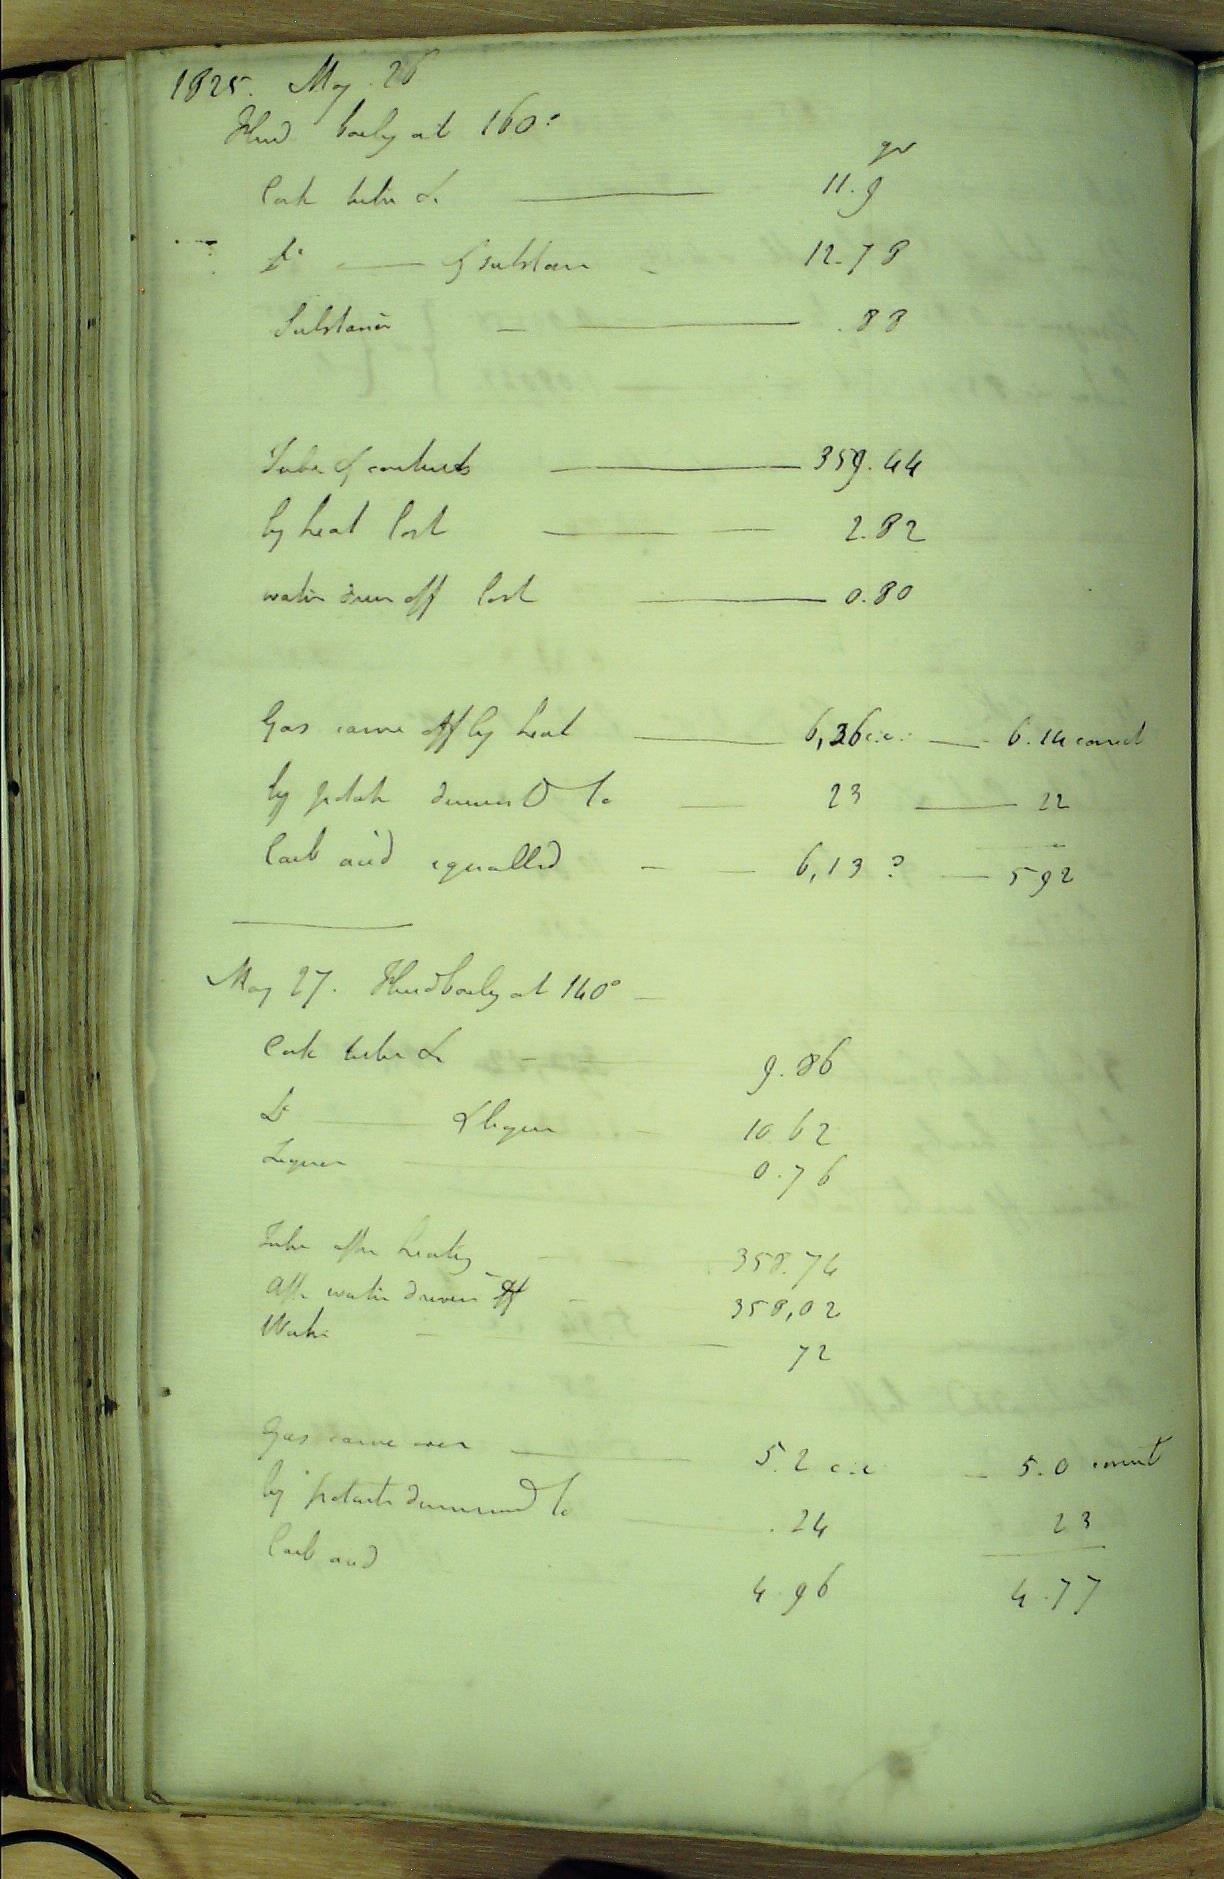 1825. May. 26
Fluid boily at 160°
gr
Cork tube &c 11.9
Do & substance 12.78
Substance .88
Tube & contents 359.44
by heat lost 2.82
water driven off lost 0.80
Gas came off by heat 6,36 c.c. 6.14 correct
by potash diminis D to 23 22
Carb acid equalled 6,13 ? 592
May 27. Fluid boily at 140°
Cork tube &c 9.86
Do & liquor 10 62
Liquor 0.76
Tube after heating 358.74
After water driven off 358,02
Water 72
Gas came over 5.2 c.c 5.0 correct
by potash diminished to .24 23
Carb acid 4.96 4.77